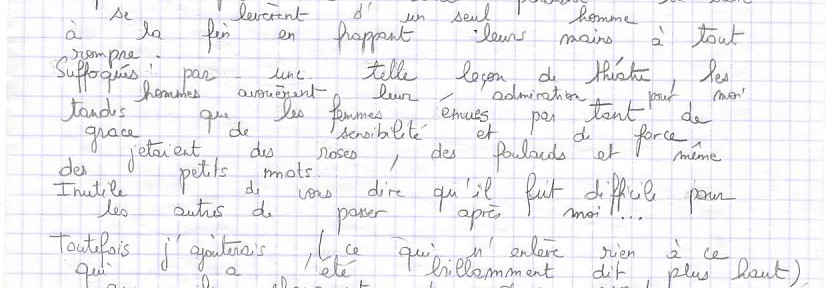 se levèrent d'un seul homme
à la fin en frappant leurs mains à tout
rompre.
Suffoqués par une telle leçon de théâtre, les
hommes avouèrent leur admiration pour moi
tandis que les femmes émues par tant de
grace de sensibilité et de force,
jetaient des roses, des foulards et même
des petits mots.
Inutile de vous dire qu'il fut difficile pour
les autres de passer après moi...
Toutefois j'ajouterais, (ce qui n'enlève rien à ce
qui a été brillamment dit plus haut)